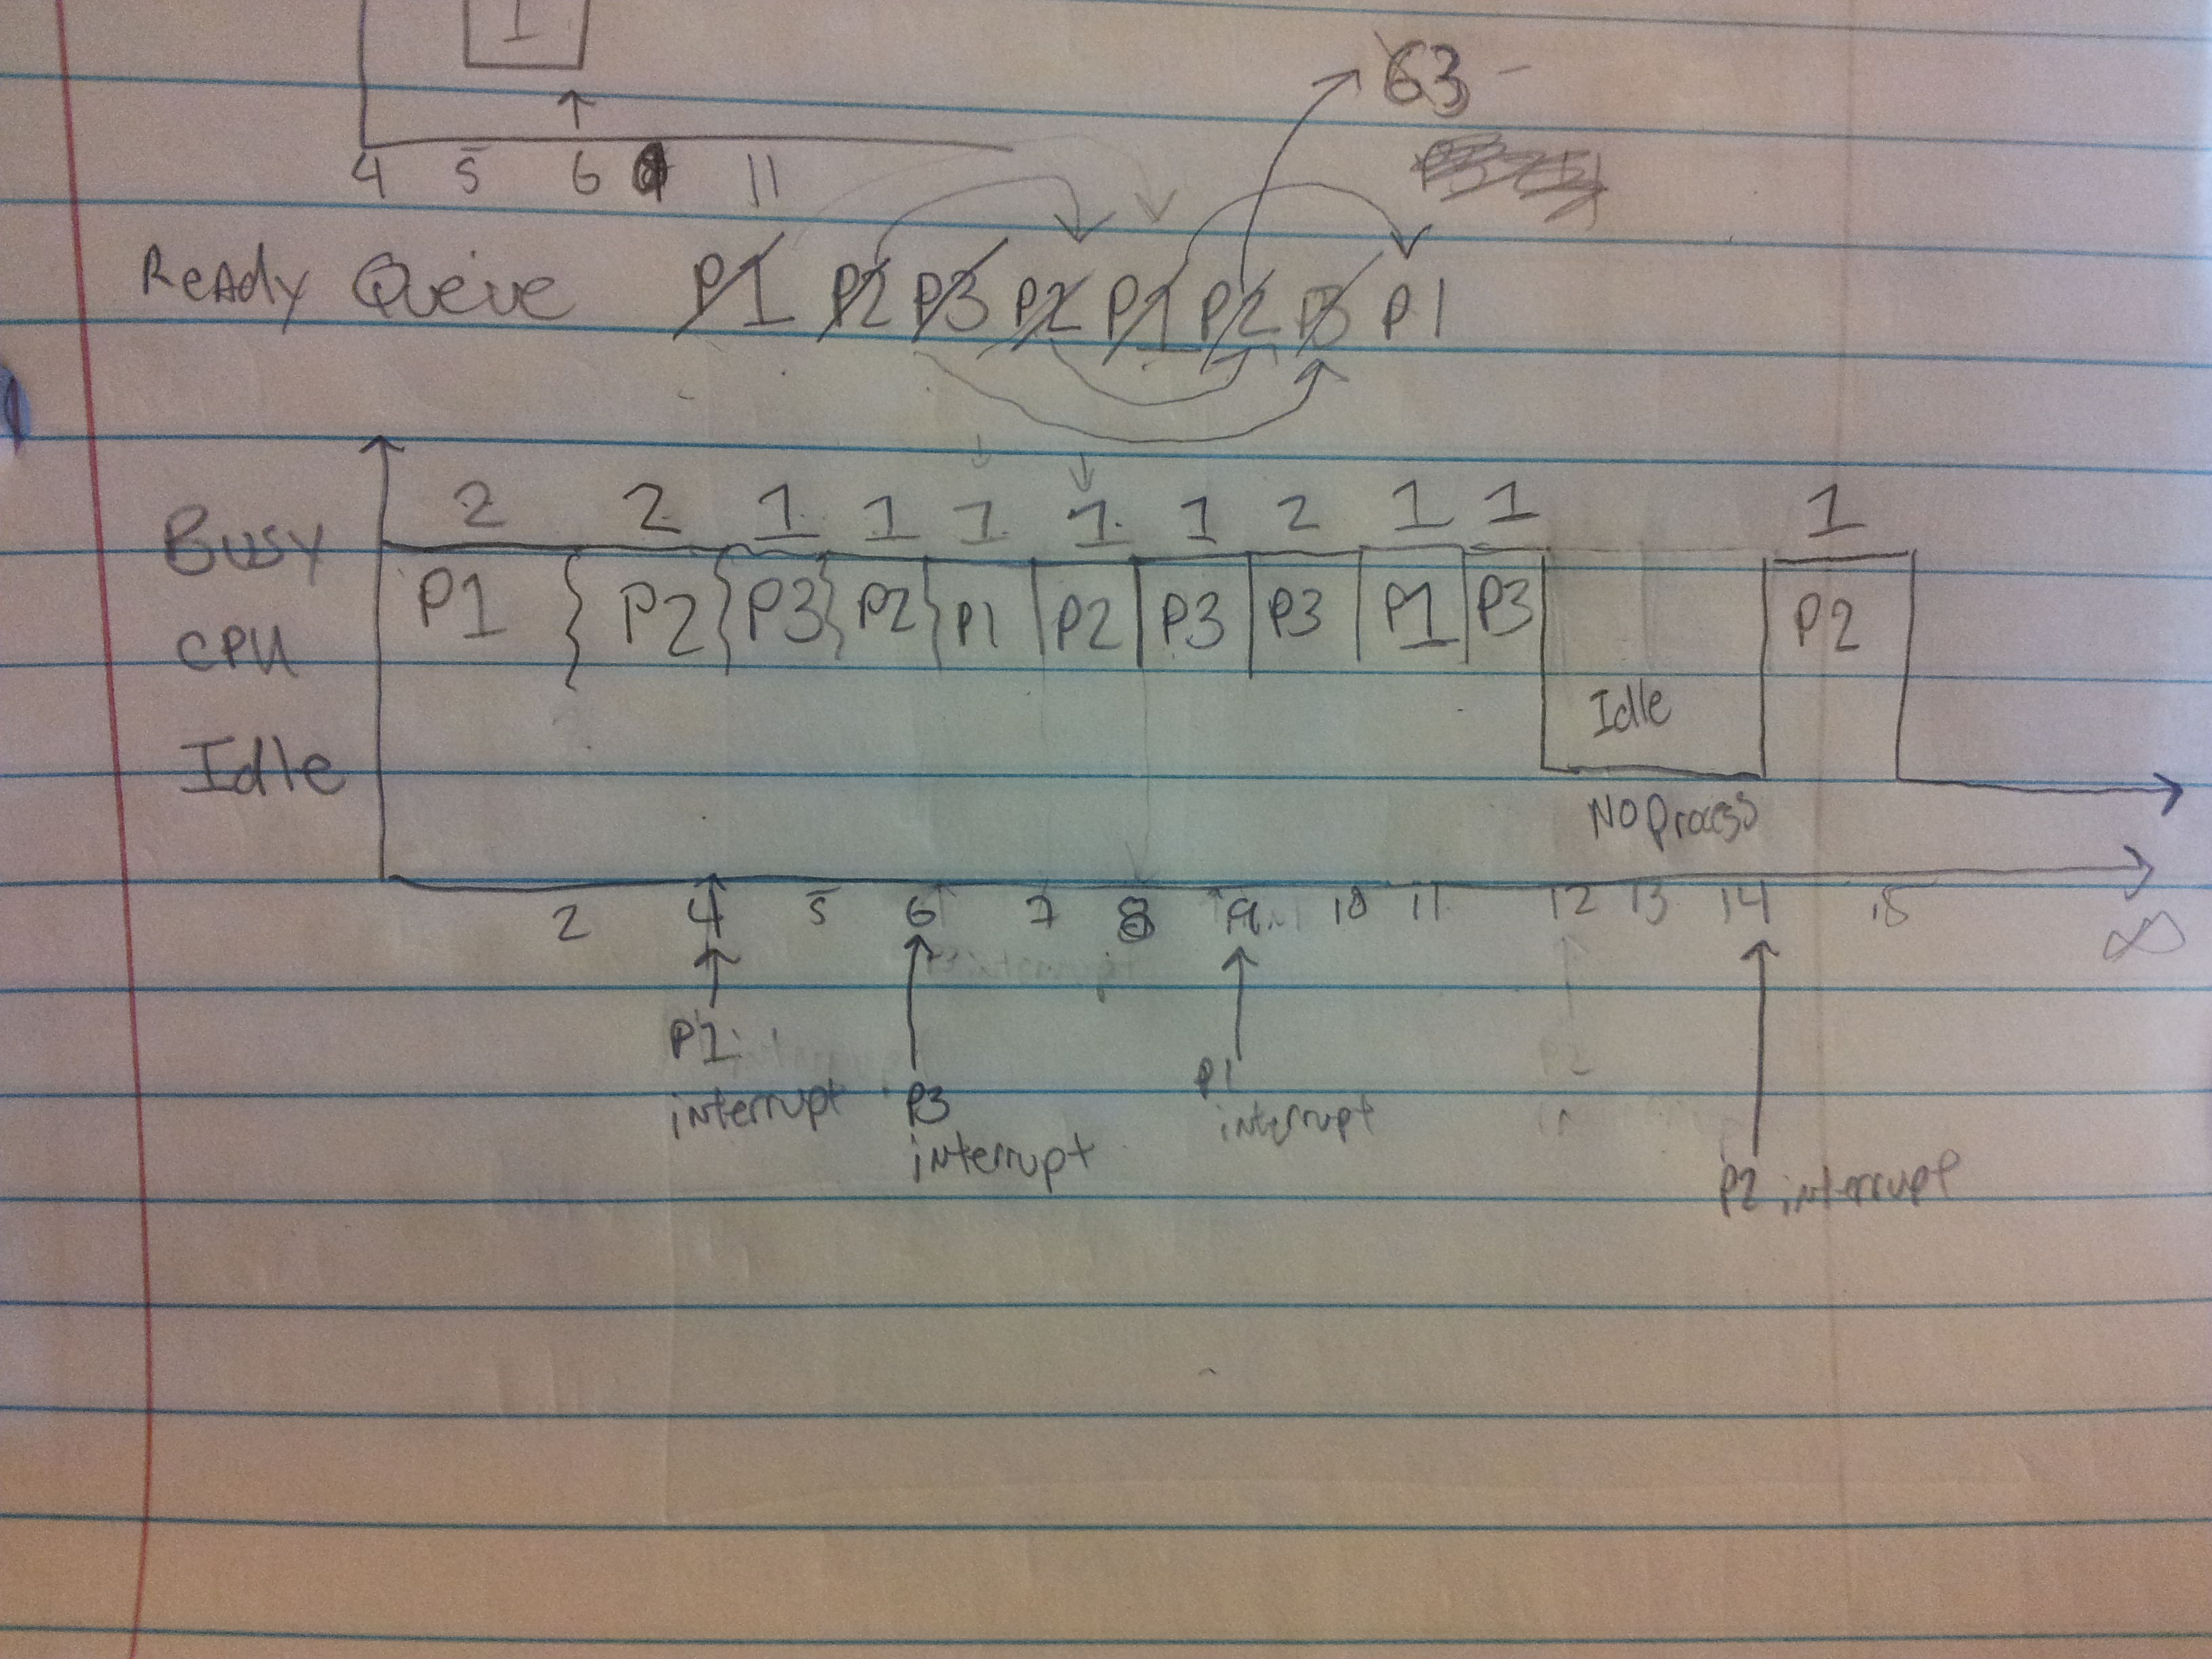 1
63 -
4 5 6 11
Ready Queue P1 P2 P3 P2 P1 P2 P3 P1
2 2 1 1 1 1 1 2 1 1 1
Busy
P1 P2 P3 P2 P1 P2 P3 P3 P1 P3 P2
CPU
Idle
Idle
No Process
2 4 5 6 7 8 9 10 11 12 13 14 15 ∞
P1
interrupt
P3
interrupt
P1
interrupt
P2 interrupt